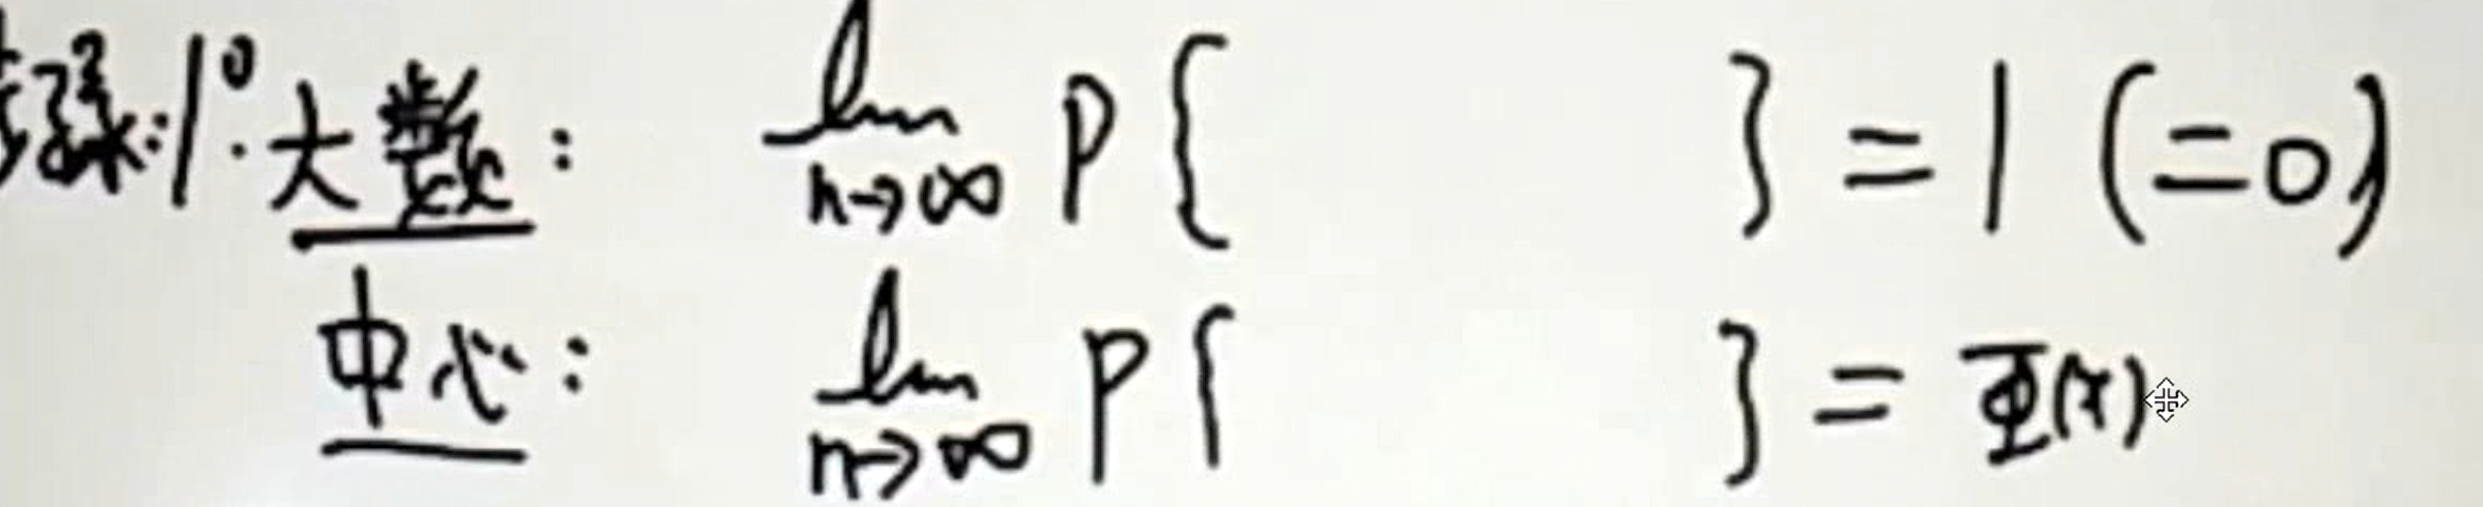 1°. 大数: lim n→∞ P{ } = 1 (=0)
中心: lim n→∞ P{ } = Φ(x)